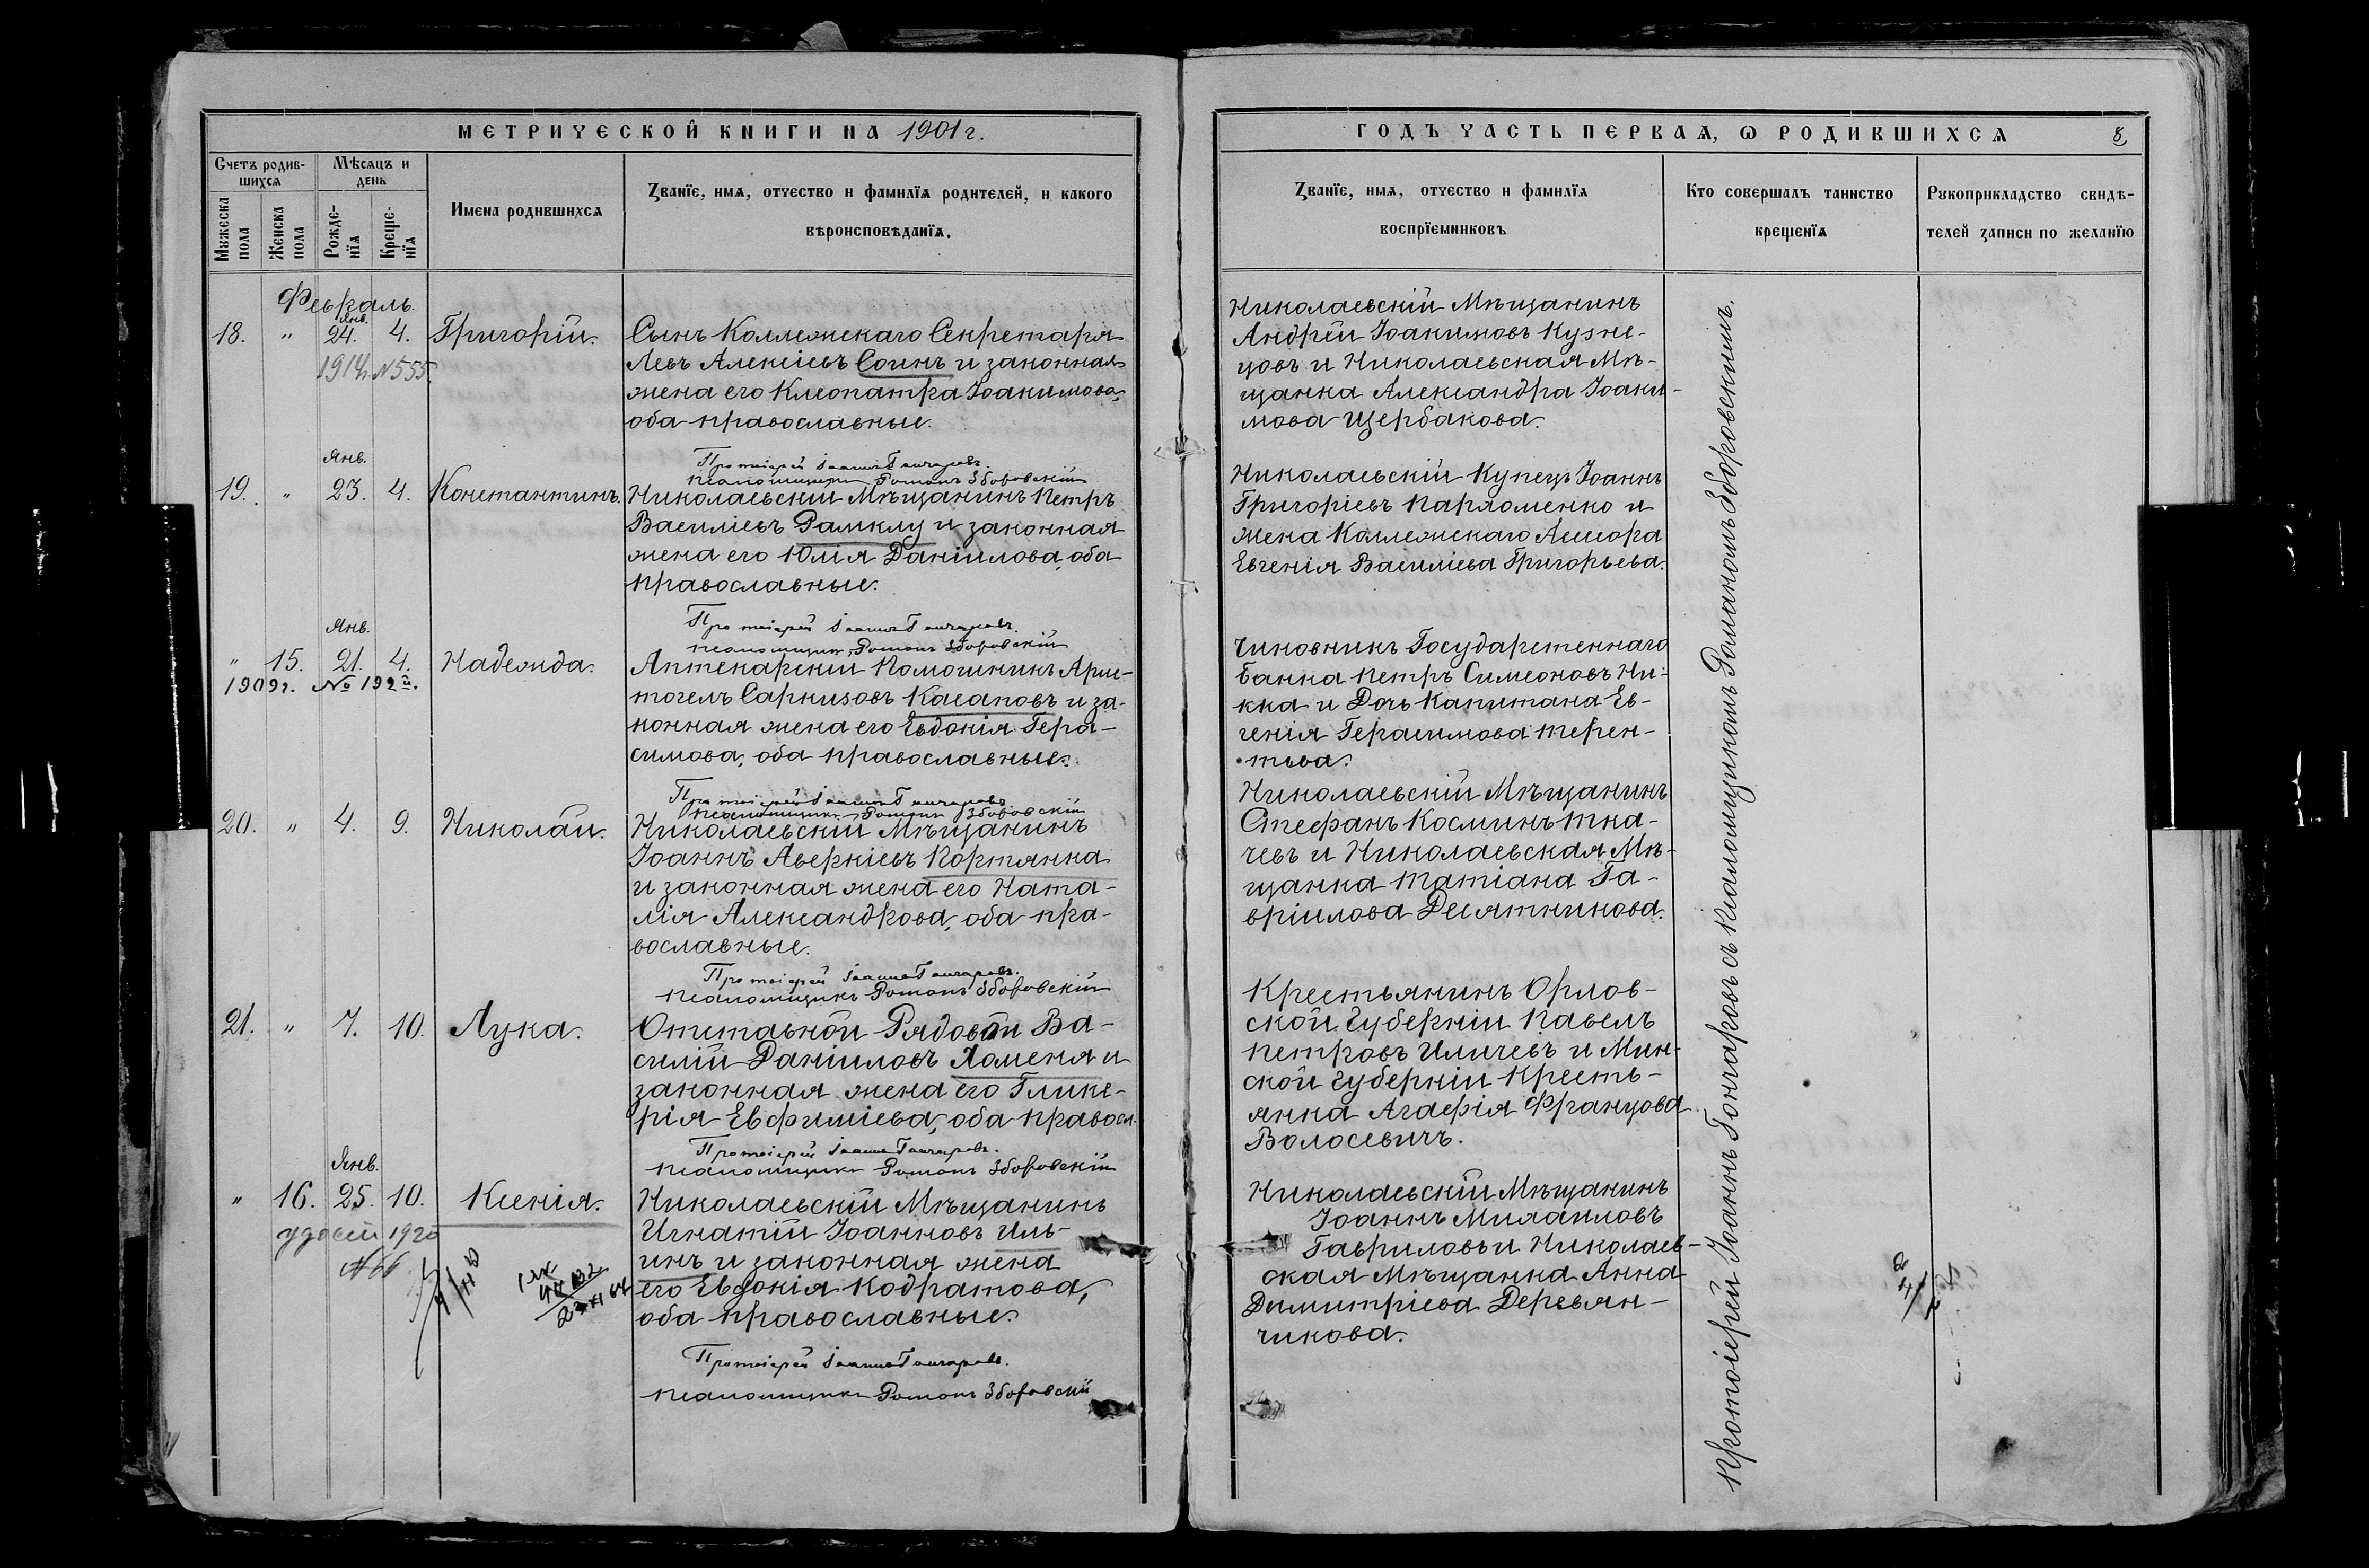 МЕТРИЧЕСКОЙ КНИГИ НА 1901 г.
Счетъ родив-
шихся
Мѣсяцъ и
день
Мужеска
пола
Женска
пола
Рожде-
нїя
Креще-
нїя
Имена родившихся
Званїе, имя, отчество и фамилїя родителей, и какого
вѣроисповѣданїя.
Февраль.
Янв.
18. " 24. 4. Григорій.
1914 г. № 555.
Сынъ Коллежскаго Секретаря
Левъ Алексіевъ Соинъ и законная
жена его Клеопатра Іоакимова,
оба православные.
Протоіерей Іоаннъ Гончаровъ.
Псаломщикъ Романъ Зборовскій
Янв.
19. " 23. 4. Константинъ.
Николаевскій Мѣщанинъ Петръ
Василіевъ Рамклу и законная
жена его Юлія Даніилова, оба
православные.
Протоіерей Іоаннъ Гончаровъ.
Псаломщикъ Романъ Зборовскій
Янв.
" 15. 21. 4. Надежда.
1909 г. № 192й.
Аптекарскій Помошникъ Арис-
тогелъ Саркизовъ Касаповъ и за-
конная жена его Евдокія Гера-
симова, оба православные.
Протоіерей Іоаннъ Гончаровъ
Псаломщикъ Романъ Зборовскій
20. " 4. 9. Николай.
Николаевскій Мѣщанинъ
Іоаннъ Аверкіевъ Кортянка
и законная жена его Ната-
лія Александрова, оба пра-
вославные.
Протоіерей Іоаннъ Гончаровъ.
Псаломщикъ Романъ Зборовскій
21. " 7. 10. Лука.
Отставной Рядовой Ва-
силій Даніиловъ Хоменя и
законная жена его Глике-
рія Евфиміева, оба правосл.
Протоіерей Іоаннъ Гончаровъ.
Псаломщикъ Романъ Зборовскій
Янв.
" 16. 25. 10. Ксенія.
1920
№ 66
Николаевскій Мѣщанинъ
Игнатій Іоанновъ Иль-
инъ и законная жена
его Евдокія Кодратова,
оба православные.
Протоіерей Іоаннъ Гончаровъ.
Псаломщикъ Романъ Зборовскій
ГОДЪ ЧАСТЬ ПЕРВАЯ, Ѡ РОДИВШИХСЯ 8
Званїе, имя, отчество и фамилїя
воспрїемниковъ
Кто совершалъ таинство
крещенїя
Рукоприкладство свидѣ-
телей записи по желанїю
Николаевскій Мѣщанинъ
Андрей Іоакимовъ Кузне-
цовъ и Николаевская Мѣ-
щанка Александра Іоаки-
мова Щербакова.
Николаевскій Купецъ Іоаннъ
Григоріевъ Пархоменко и
жена Коллежскаго Ассесора
Евгенія Василіева Григорьева.
Чиновникъ Государственнаго
Банка Петръ Симеоновъ Ни-
кка и Дочь Капитана Ев-
генія Герасимова Терен-
тьева.
Николаевскій Мѣщанинъ
Стефанъ Косминъ Тка-
чевъ и Николаевская Мѣ-
щанка Татіана Га-
вріилова Десятникова.
Крестьянинъ Орлов-
ской губерніи Павелъ
Петровъ Иличевъ и Мин-
ской губерніи Кресть-
янка Агафія Францова
Волосевичъ.
Николаевскій Мѣщанинъ
Іоаннъ Михаиловъ
Гавриловъ и Николаев-
ская Мѣщанка Анна
Димитріева Деревян-
чикова.
Протоіерей Іоаннъ Гончаровъ съ Псаломщикомъ Романомъ Зборовскимъ.